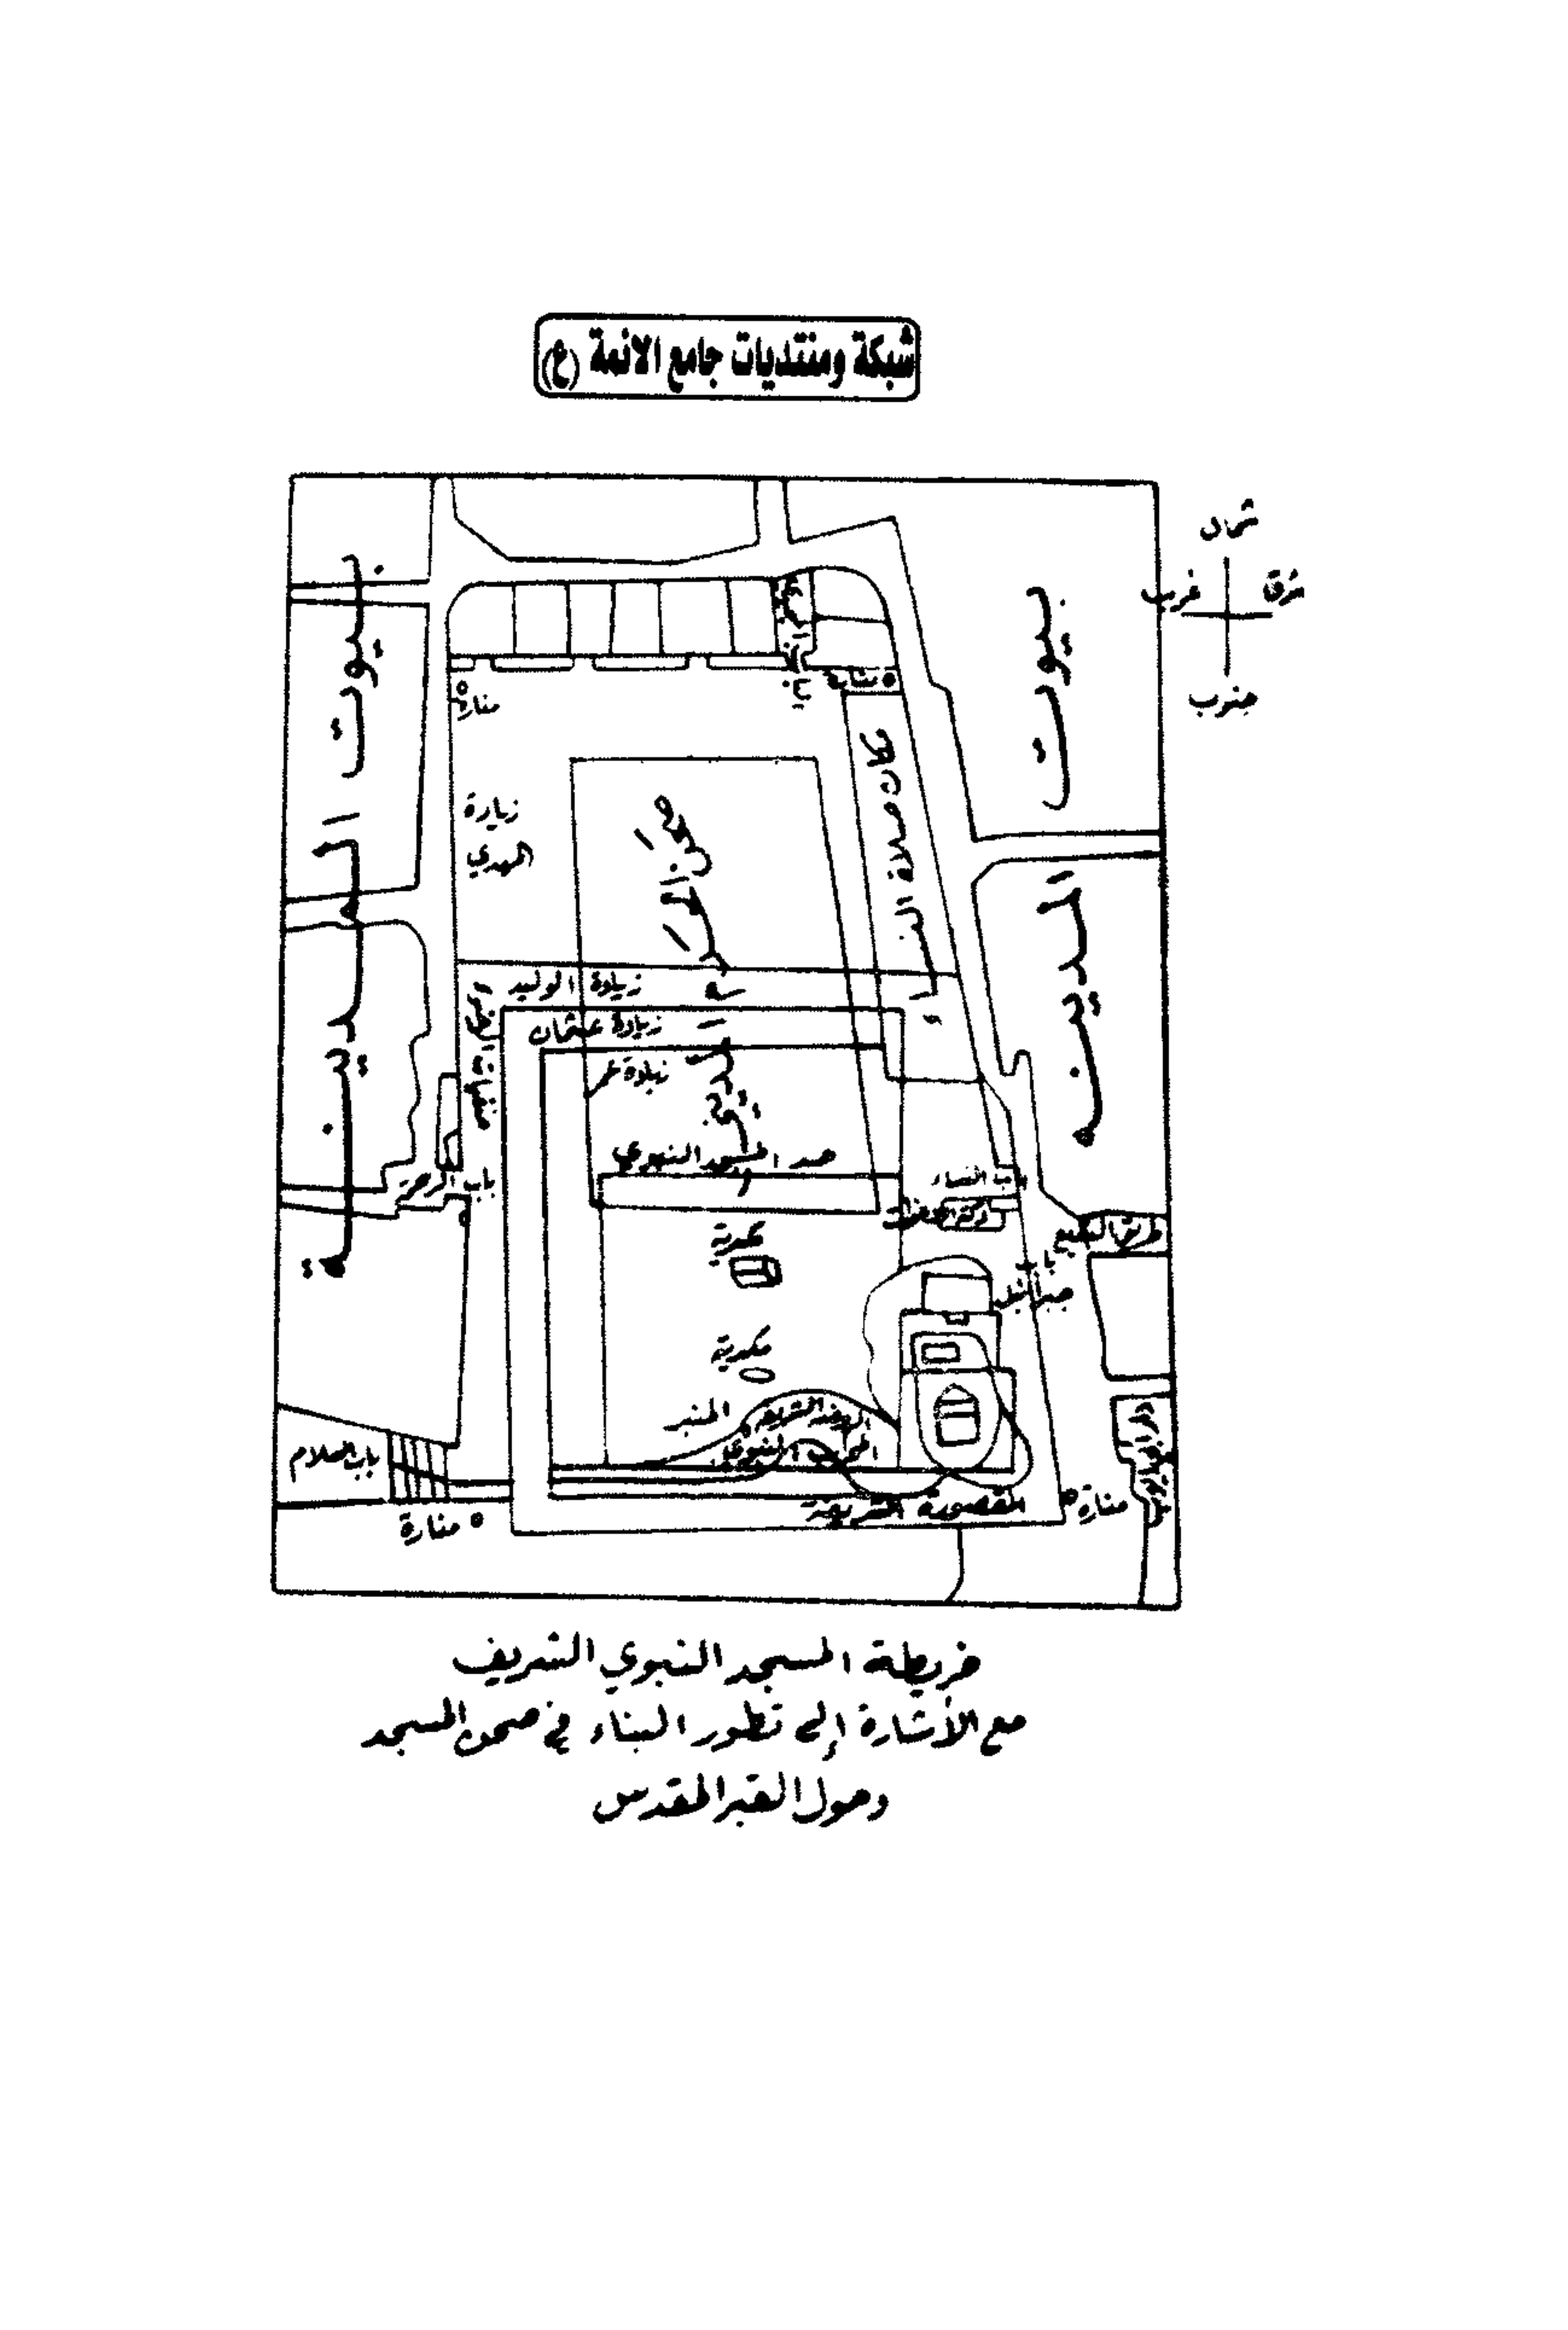 شبكة ومنتديات جامع الائمة (ع)
شمال
شرق
غرب
جنوب
بيوت المدينة
بيوت المدينة
منارة
منارة
باب
مكان صلاة النساء
زيادة
المهدي
زيادة الوليد
زيادة عثمان
زيادة عمر
حد المسجد النبوي
باب الرحمة
باب النساء
طريق البقيع
باب
جبرائيل
مكبرية
المنبر
الروضة الشريفة
المحراب النبوي
باب السلام
المقصورة الشريفة
منارة
منارة
خريطة المسجد النبوي الشريف
مع الأشارة إلى تطور البناء في صحون المسجد
وحول القبر المقدس